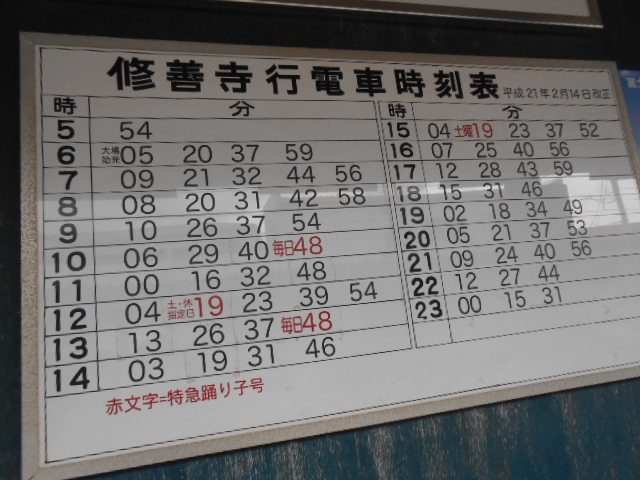 修善寺行電車時刻表 平成21年2月14日改正
時 分
5 54
6 大場始発05 20 37 59
7 09 21 32 44 56
8 08 20 31 42 58
9 10 26 37 54
10 06 29 40 毎日48
11 00 16 32 48
12 04 土・休指定日19 23 39 54
13 13 26 37 毎日48
14 03 19 31 46
時 分
15 04 土曜19 23 37 52
16 07 25 40 56
17 12 28 43 59
18 15 31 46
19 02 18 34 49
20 05 21 37 53
21 09 24 40 56
22 12 27 44
23 00 15 31
赤文字=特急踊り子号